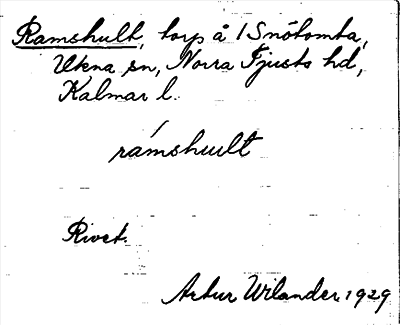 Ramshult, torp å 1 Snötomta,
Ukna sn, Norra Tjusts hd,
Kalmar l.
rámshult
Rivet.
Artur Wilander 1929